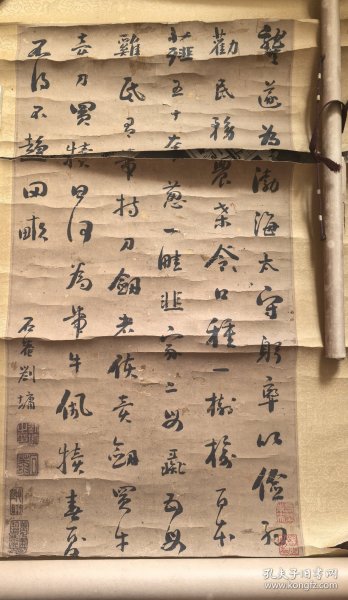 龔遂為渤海太守躬率以儉約
勸民務農桑令口種一樹榆百本
薤五十本葱一畦韭家二母彘五母
雞民有帶持刀劍者使賣劍買牛
賣刀買犢曰何為帶牛佩犢春夏
不得不趨田畝
石菴劉墉
孔夫子旧书网
www.kongfz.com